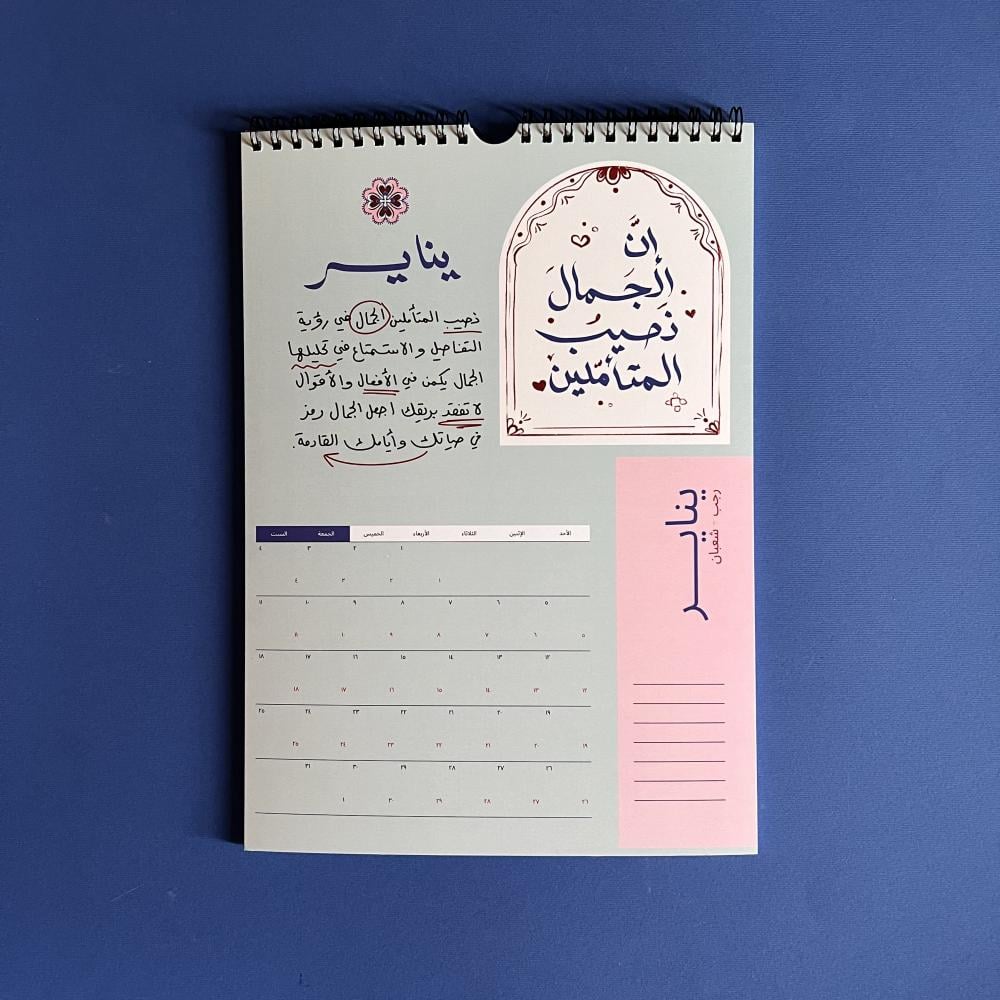 يناير
نصيب المتأملين الجمال في رؤية
التفاصيل والاستمتاع في تحليلها
الجمال يكمن في الأفعال والأقوال
لا تفقد بريقك اجعل الجمال رمز
في حياتك وأيامك القادمة.
إنَّ
الجَمالَ
نَصيبُ
المتأمّلين
يناير
رجب - شعبان
الأحد الإثنين الثلاثاء الأربعاء الخميس الجمعة السبت
١ ٢ ٣ ٤
١ ٢ ٣ ٤
٥ ٦ ٧ ٨ ٩ ١٠ ١١
٥ ٦ ٧ ٨ ٩ ١٠ ١١
١٢ ١٣ ١٤ ١٥ ١٦ ١٧ ١٨
١٢ ١٣ ١٤ ١٥ ١٦ ١٧ ١٨
١٩ ٢٠ ٢١ ٢٢ ٢٣ ٢٤ ٢٥
١٩ ٢٠ ٢١ ٢٢ ٢٣ ٢٤ ٢٥
٢٦ ٢٧ ٢٨ ٢٩ ٣٠ ٣١
٢٦ ٢٧ ٢٨ ٢٩ ٣٠ ١